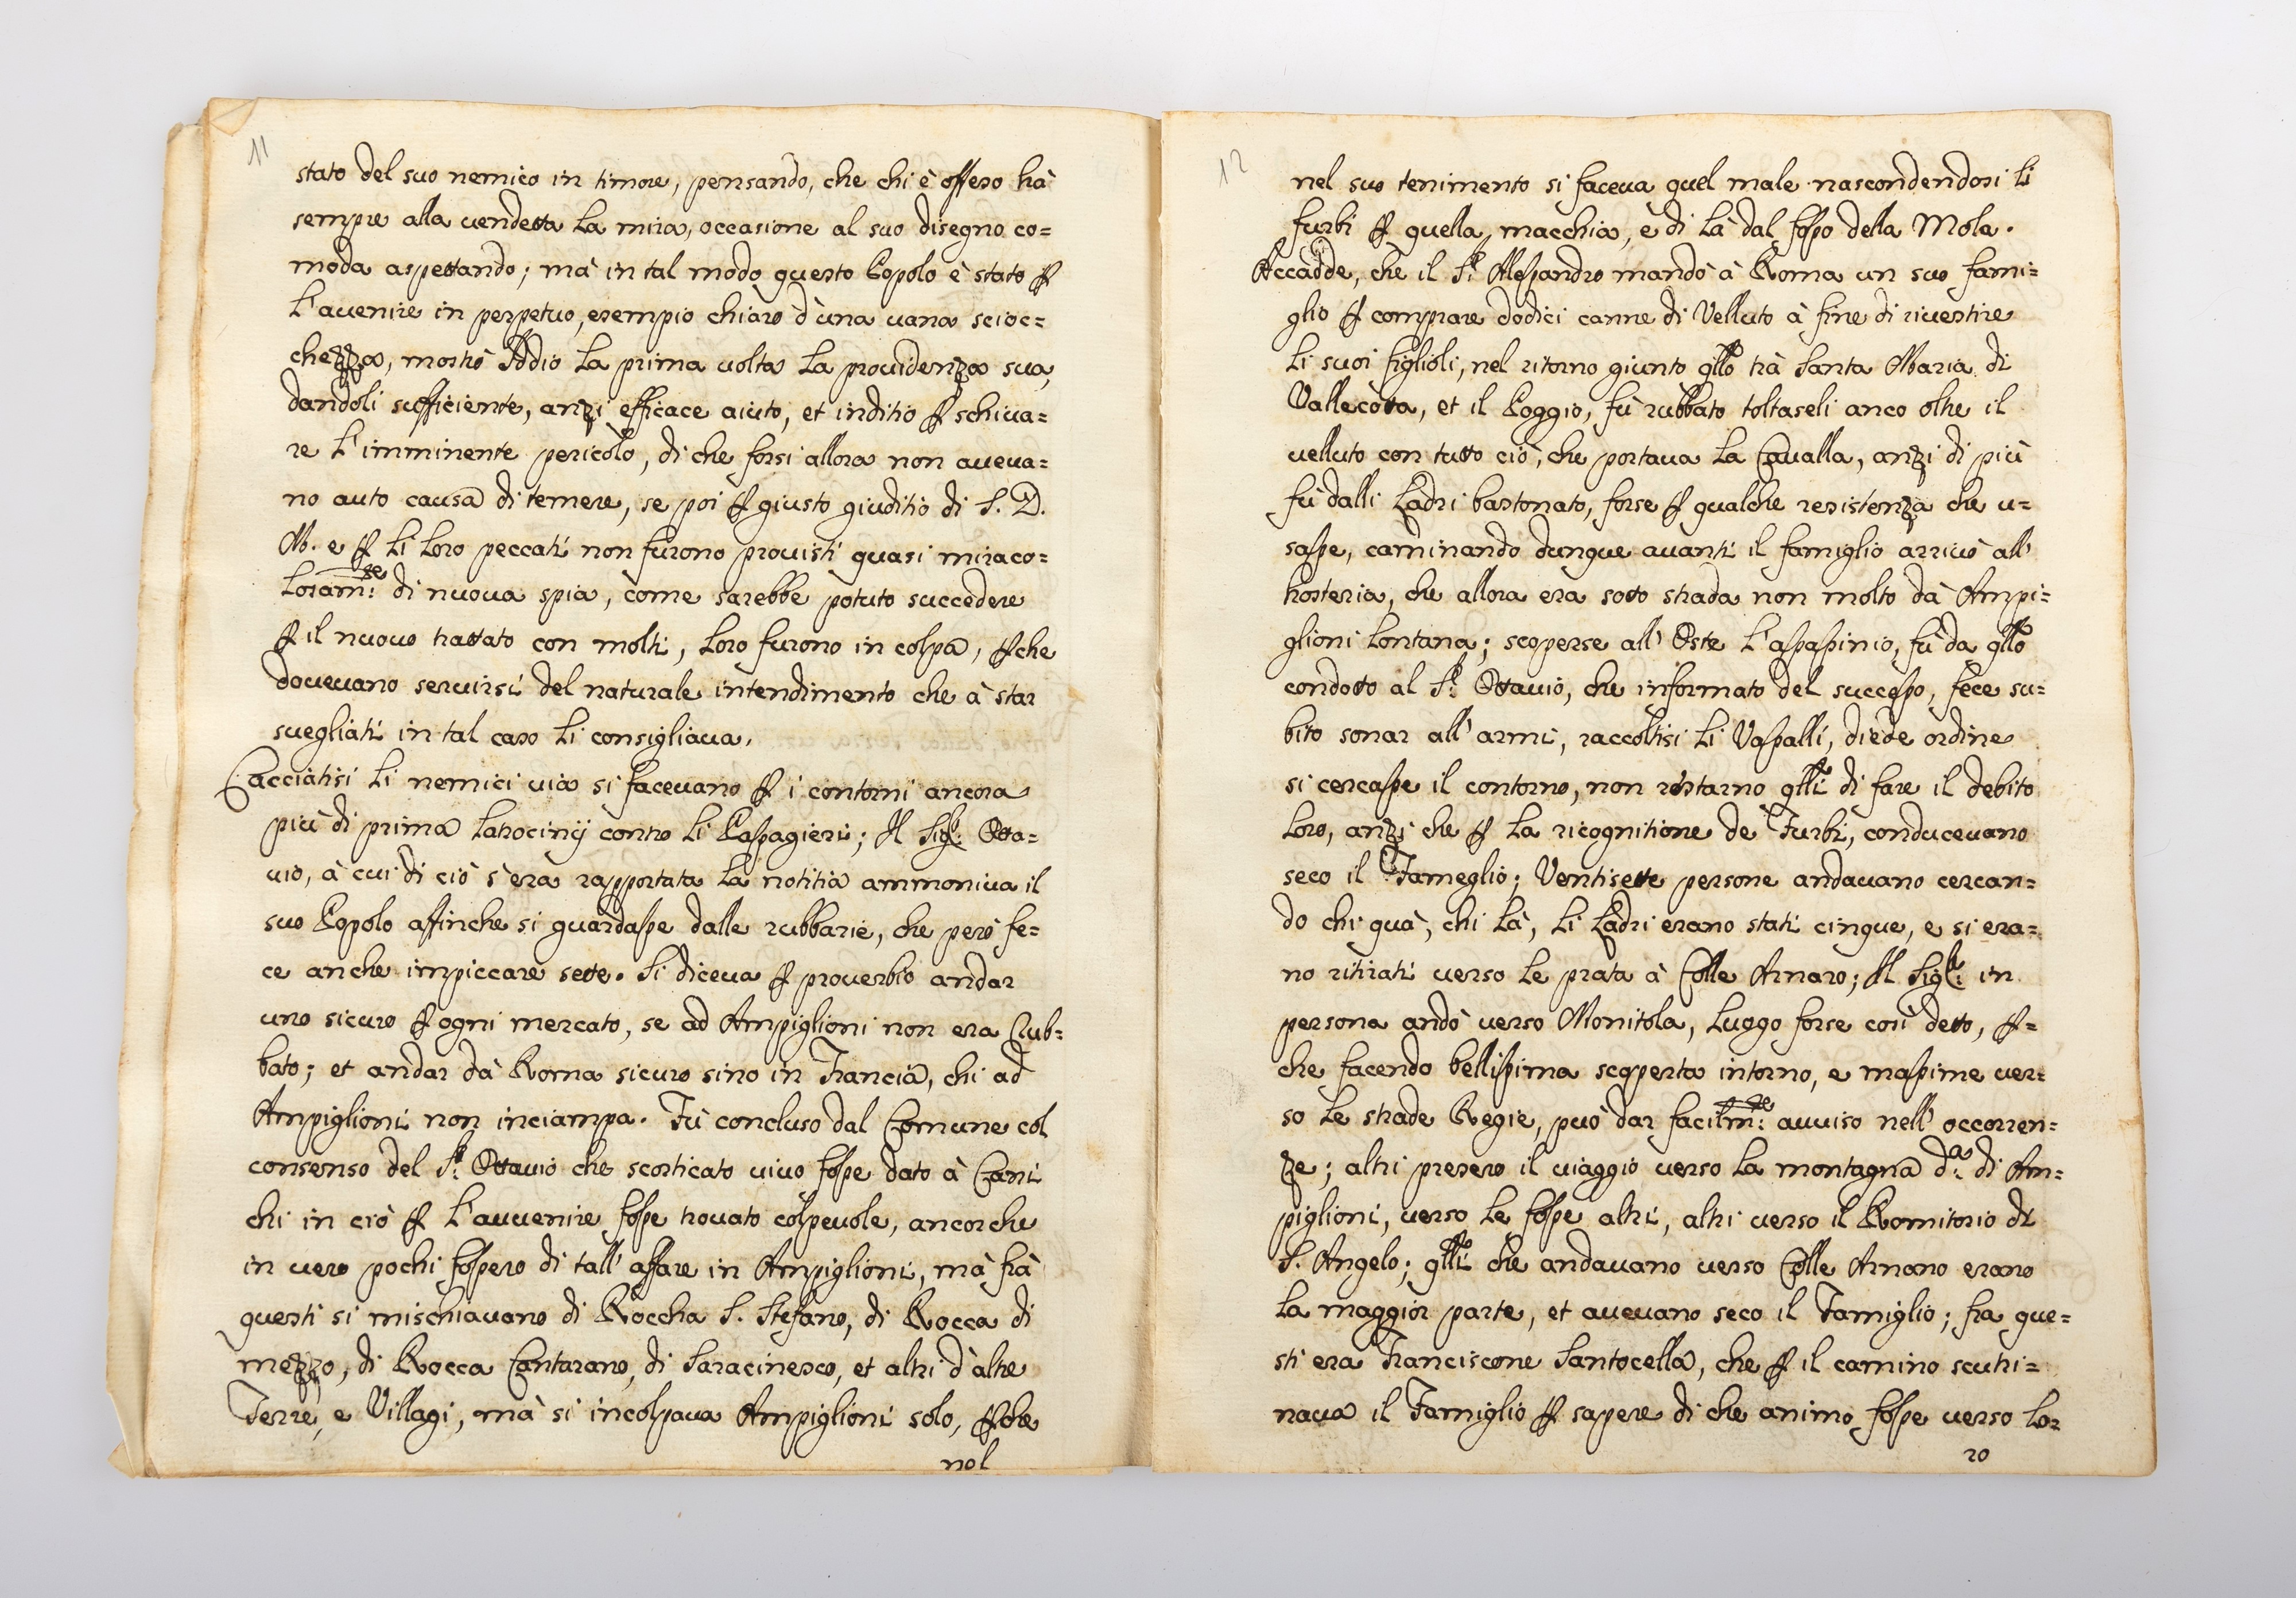 11
stato del suo nemico in timore, pensando, che chi è offeso hà
sempre alla uendetta la mira, occasione al suo disegno co=
moda aspettando; mà in tal modo questo Popolo è stato ꝑ
l'auenire in perpetuo, esempio chiaro d'una uana scioc=
chezza, mostrò Iddio la prima uolta la prouidenza sua,
dandoli sufficiente, anzi efficace aiuto, et inditio ꝑ schiua=
re l'imminente pericolo, di che forsi allora non aueua=
no auto causa di temere, se poi ꝑ giusto giuditio di S. D.
M. e ꝑ li loro peccati non furono prouisti quasi miraco=
losam:te di nuoua spia, come sarebbe potuto succedere
ꝑ il nuouo trattato con molti, loro furono in colpa, ꝑche
doueuano seruirsi del naturale intendimento che à star
suegliati in tal caso li consigliaua.
Cacciatisi li nemici uia si faceuano ꝑ i contorni ancora
più di prima latrocinij contro li Passagieri; Il Sig:r Otta=
uio, à cui di ciò s'era rapportata la notitia ammoniua il
suo Popolo affinche si guardasse dalle rubbarie, che però fe=
ce anche impiccare sette. Si diceua ꝑ prouerbio andar
uno sicuro ꝑ ogni mercato, se ad Ampiglioni non era Rub=
bato; et andar dà Roma sicuro sino in Francia, chi ad
Ampiglioni non inciampa. Fù concluso dal Comune col
consenso del S:r Ottauio che scorticato uiuo fosse dato à Cani
chi in ciò ꝑ l'auuenire fosse trouato colpeuole, ancorche
in uero pochi fossero di tall' affare in Ampiglioni, mà frà
questi si mischiauano di Roccha S. Stefano, di Rocca di
mezzo, di Rocca Cantarano, di Saracinesco, et altri d'altre
Terre, e Villagi, mà si incolpaua Ampiglioni solo, ꝑche
nel
12
nel suo tenimento si faceua quel male nascondendosi li
furbi ꝑ quella macchia, e di là dal fosso della Mola.
Accadde, che il S:r Alessandro mandò à Roma un suo fami=
glio ꝑ comprare dodici canne di Velluto à fine di riuestire
li suoi figlioli, nel ritorno giunto qllo trà Santa Maria di
Vallecotta, et il Poggio, fù rubbato toltaseli anco oltre il
uelluto con tutto ciò, che portaua la Caualla, anzi di più
fù dalli Ladri bastonato, forse ꝑ qualche resistenza che u=
sasse, caminando dunque auanti il famiglio arriuò all'
hosteria, che allora era sotto strada non molto dà Ampi=
glioni lontana; scoperse all' Oste l'assassinio, fù da qllo
condotto al S:r Ottauio, che informato del successo, fece su=
bito sonar all' armi, raccoltisi li Vassalli, diede ordine
si cercasse il contorno, non restarno qlli di fare il debito
loro, anzi che ꝑ la ricognitione de' Furbi, conduceuano
seco il Fameglio; Ventisette persone andauano cercan=
do chi quà, chi là, li Ladri erano stati cinque, e si era=
no ritirati uerso le prata à Colle Arnaro; Il Sig:r in
persona andò uerso Monitola, luogo forse così detto, ꝑ=
che facendo bellissima scoperta intorno, e massime uer=
so le strade Regie, può dar facilm:te auuiso nell' occorren=
ze; altri presero il uiaggio uerso la montagna d:a di Am=
piglioni, uerso le fosse altri, altri uerso il Romitorio di
S. Angelo; qlli che andauano uerso Colle Arnaro erano
la maggior parte, et aueuano seco il Famiglio; fra que=
sti era Franciscone Santocella, che ꝑ il camino scutri=
naua il Famiglio ꝑ sapere di che animo fosse uerso lo=
ro